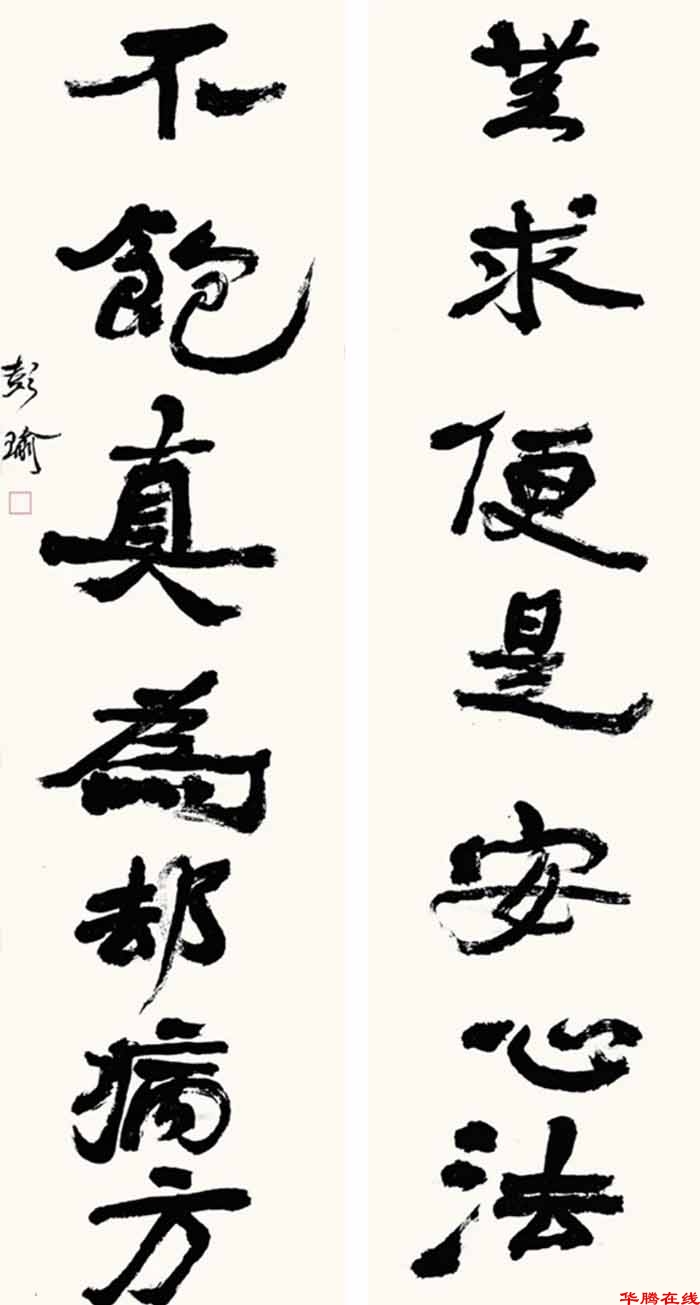 無求便是安心法
不飽真為却病方
彭瑜
华腾在线